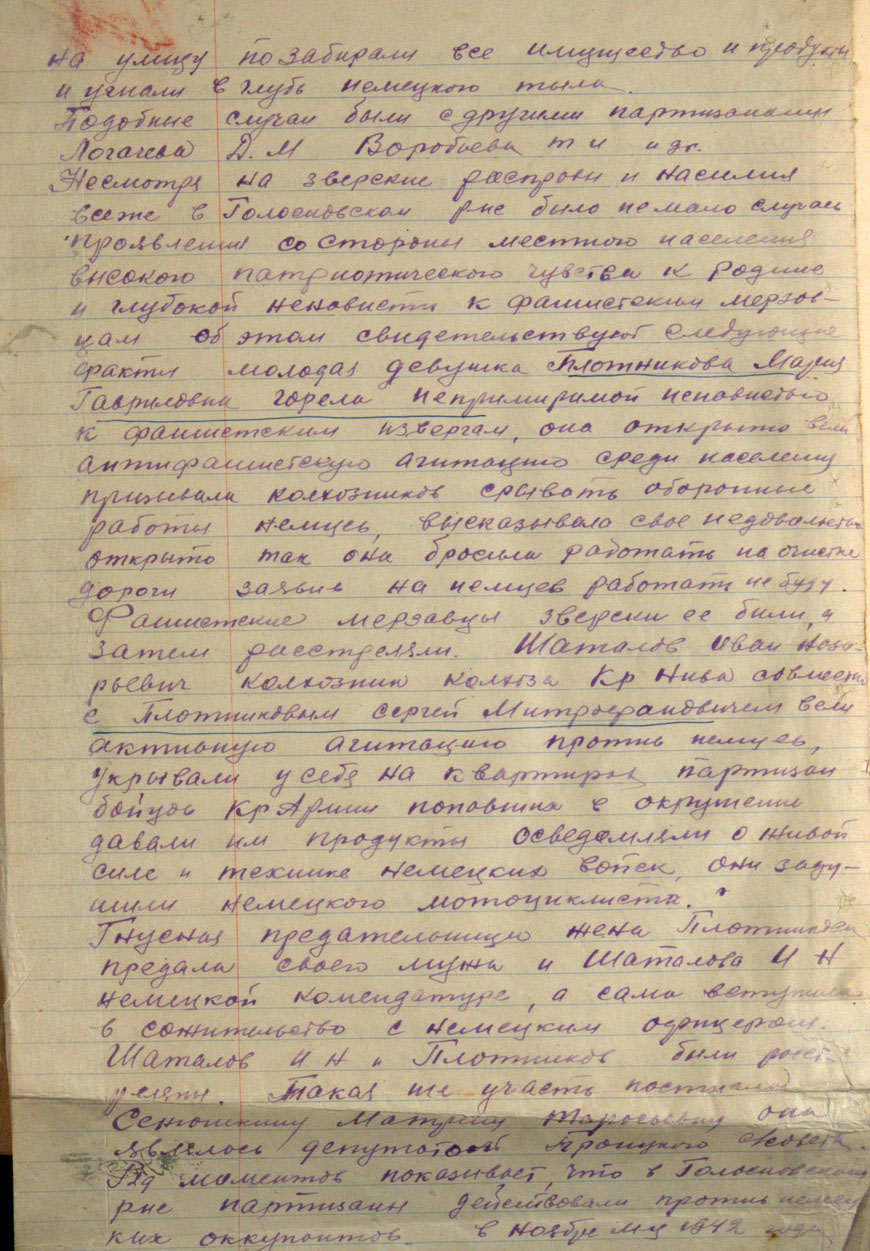 на улицу позабирали все имущество и продукты
и угнали в глубь немецкого тыла.
Подобные случаи были с другими партизанами
Логачева Д.М Воробьева т и и др.
Несмотря на зверские расправы и насилия
все же в Голосновском рне было немало случаев
проявления со стороны местного населения
высокого патриотического чувства к родине
и глубокой ненависти к фашистским мерзав-
цам об этом свидетельствуют следующие
факты молодая девушка Плотникова Мария
Гавриловна горела непримиримой ненавистью
к фашистским извергам, она открыто вела
антифашистскую агитацию среди населения
призывала колхозников срывать оборонные
работы немцев, высказывала свое недовольство
открыто так она бросила работать на очистке
дороги заявив на немцев работать не буду.
Фашистские мерзавцы зверски ее били, а
затем расстреляли. Шаталов Иван Наза-
рьевич колхозник колхоза Кр Нива совместно
с Плотниковым Сергей Митрофановичем вели
активную агитацию против немцев,
укрывали у себя на квартирах партизан
бойцов Кр Армии попавших в окружение
давали им продукты осведомляли о живой
силе и технике немецких войск, они заду-
шили немецкого мотоциклиста.
Гнусная предательница жена Плотникова
предала своего мужа и Шаталова И Н
немецкой комендатуре, а сама вступила
в сожительство с немецким офицером.
Шаталов И Н и Плотников были расст-
реляны. Такая же участь постигла
Сенюшкину Матрену Тарасьевну она
являлось депутатом Троицкого с/совета.
Ряд моментов показывает, что в Голосновском
рне партизаны действовали против немец
ких оккупантов. в ноябре м-ц 1942 года